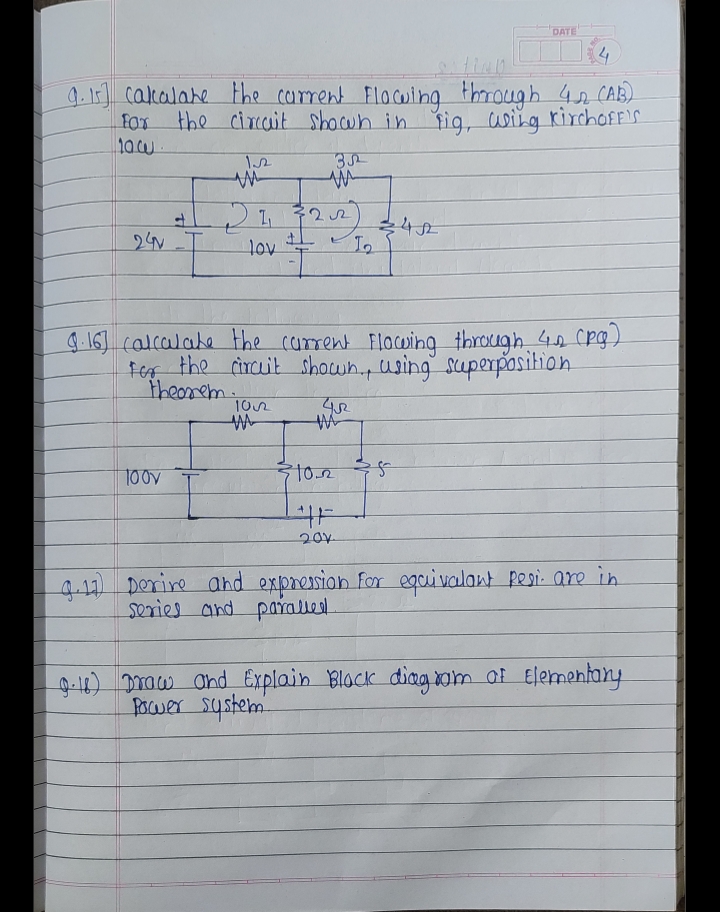 DATE
4
Q.15] Calculate the current Flowing through 4Ω (AB)
For the circuit shown in fig, using Kirchoff's
law.
1Ω 3Ω
+ I1 2Ω 4Ω
24V - 10V + - I2
Q.16] Calculate the current Flowing through 4Ω (PQ)
For the circuit shown., using superposition
theorem.
10Ω 4Ω
100V 10Ω 5
+ -
20V
Q.17) Derive and expression For equivalant Resi. are in
series and parallel
Q.18) Draw and Explain Block diagram of Elementary
Power system